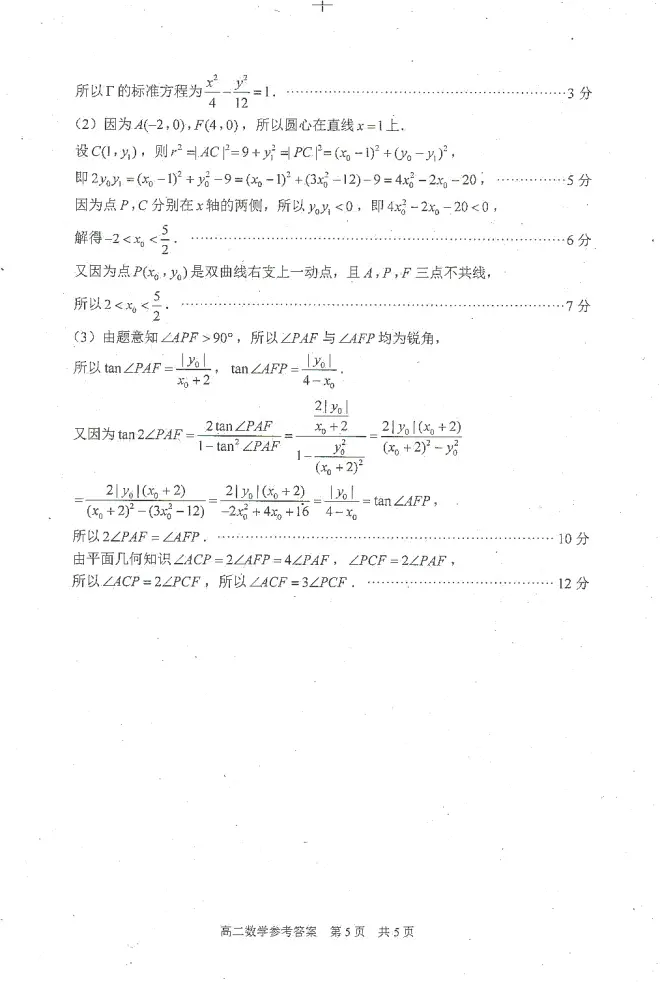 所以Γ的标准方程为 x²/4 − y²/12 = 1. ……………………3 分
(2) 因为 A(−2, 0), F(4, 0), 所以圆心在直线 x = 1 上.
设 C(1, y₁), 则 r² =| AC |² = 9 + y₁² =| PC |² = (x₀ − 1)² + (y₀ − y₁)²,
即 2y₀y₁ = (x₀ − 1)² + y₀² − 9 = (x₀ − 1)² + (3x₀² − 12) − 9 = 4x₀² − 2x₀ − 20, ……………5 分
因为点 P, C 分别在 x 轴的两侧, 所以 y₀y₁ < 0, 即 4x₀² − 2x₀ − 20 < 0,
解得 −2 < x₀ < 5/2. ……………………6 分
又因为点 P(x₀, y₀) 是双曲线右支上一动点, 且 A, P, F 三点不共线,
所以 2 < x₀ < 5/2. ……………………7 分
(3) 由题意知 ∠APF > 90°, 所以 ∠PAF 与 ∠AFP 均为锐角,
所以 tan ∠PAF = | y₀ |/(x₀ + 2), tan ∠AFP = | y₀ |/(4 − x₀).
又因为 tan 2∠PAF = 2 tan ∠PAF/(1 − tan² ∠PAF) = (2| y₀ |/(x₀ + 2))/(1 − y₀²/(x₀ + 2)²) = 2| y₀ |(x₀ + 2)/((x₀ + 2)² − y₀²)
= 2| y₀ |(x₀ + 2)/((x₀ + 2)² − (3x₀² − 12)) = 2| y₀ |(x₀ + 2)/(−2x₀² + 4x₀ + 16) = | y₀ |/(4 − x₀) = tan ∠AFP,
所以 2∠PAF = ∠AFP. ……………………10 分
由平面几何知识 ∠ACP = 2∠AFP = 4∠PAF, ∠PCF = 2∠PAF,
所以 ∠ACP = 2∠PCF, 所以 ∠ACF = 3∠PCF. ……………………12 分
高二数学参考答案 第 5 页 共 5 页